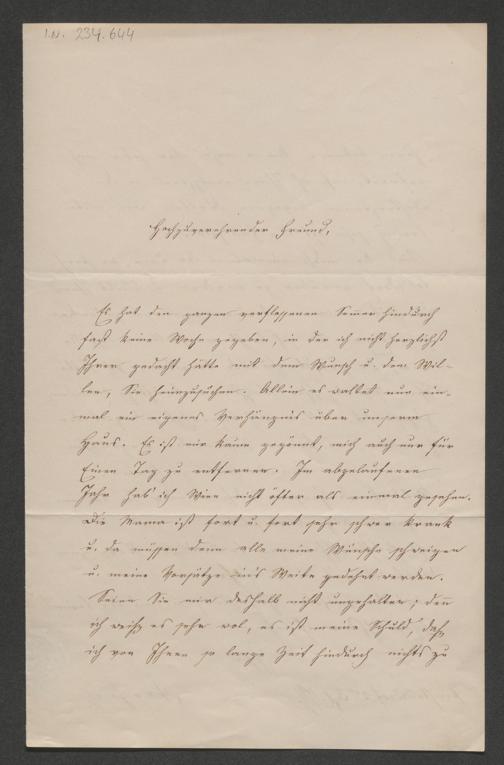 I.N. 234.644
Hochzuverehrender Freund,
Es hat den ganzen verflossenen Sommer hindurch
fast keine Woche gegeben, in der ich nicht herzlichst
Ihrer gedacht hätte mit dem Wunsch u. dem Wil-
len, Sie heimzusuchen. Allein es waltet nun ein-
mal ein eigenes Verhängnis über unserm
Haus. Es ist mir kaum gegönnt, mich auch nur für
Einen Tag zu entfernen. Im abgelaufenen
Jahr hab' ich Wien nicht öfter als einmal gesehen.
Die Mama ist fort u. fort sehr schwer krank
u. da müssen denn alle meine Wünsche schweigen
u. meine Vorsätze in's Weite gedehnt werden.
Seien Sie mir deshalb nicht ungehalten; den̅
ich weiß es sehr wol, es ist meine Schuld, daß
ich von Ihnen so lange Zeit hindurch nichts zu